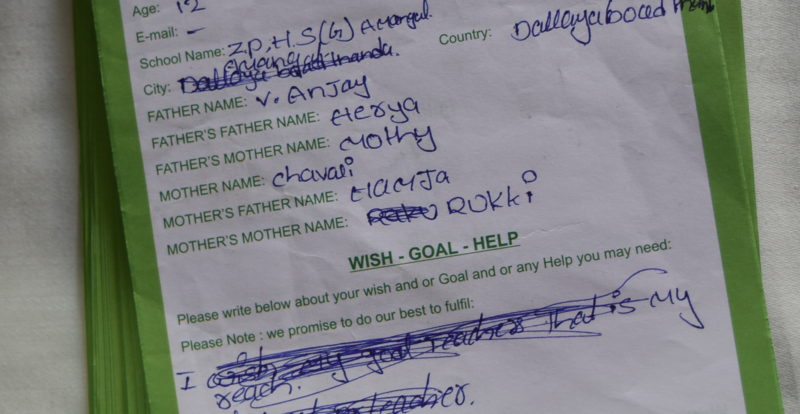 Age: 12
E-mail: -
School Name: Z.P.H.S (G) Amangal
Country: Dallayaboed
City: Amangal
FATHER NAME: V. Anjay
FATHER'S FATHER NAME: Herya
FATHER'S MOTHER NAME: Mothy
MOTHER NAME: Chavali
MOTHER'S FATHER NAME: HAMJa
MOTHER'S MOTHER NAME: RUKKi
WISH - GOAL - HELP
Please write below about your wish and or Goal and or any Help you may need:
Please Note : we promise to do our best to fulfil:
I wish my goal teacher that is my
reach.
teacher.